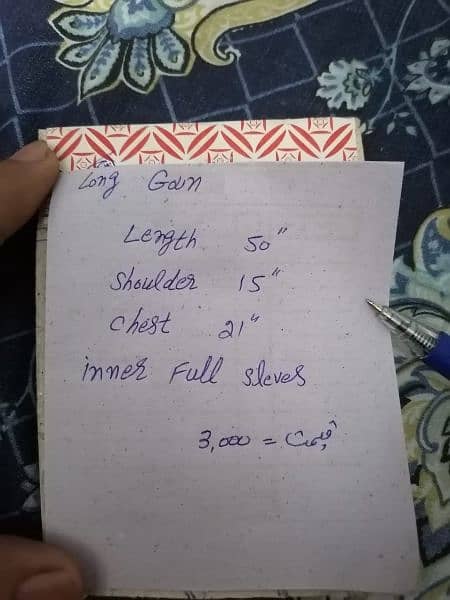 Long Goun
Length 50"
Shoulder 15"
Chest 21"
inner Full sleves
3,000 = قیمت